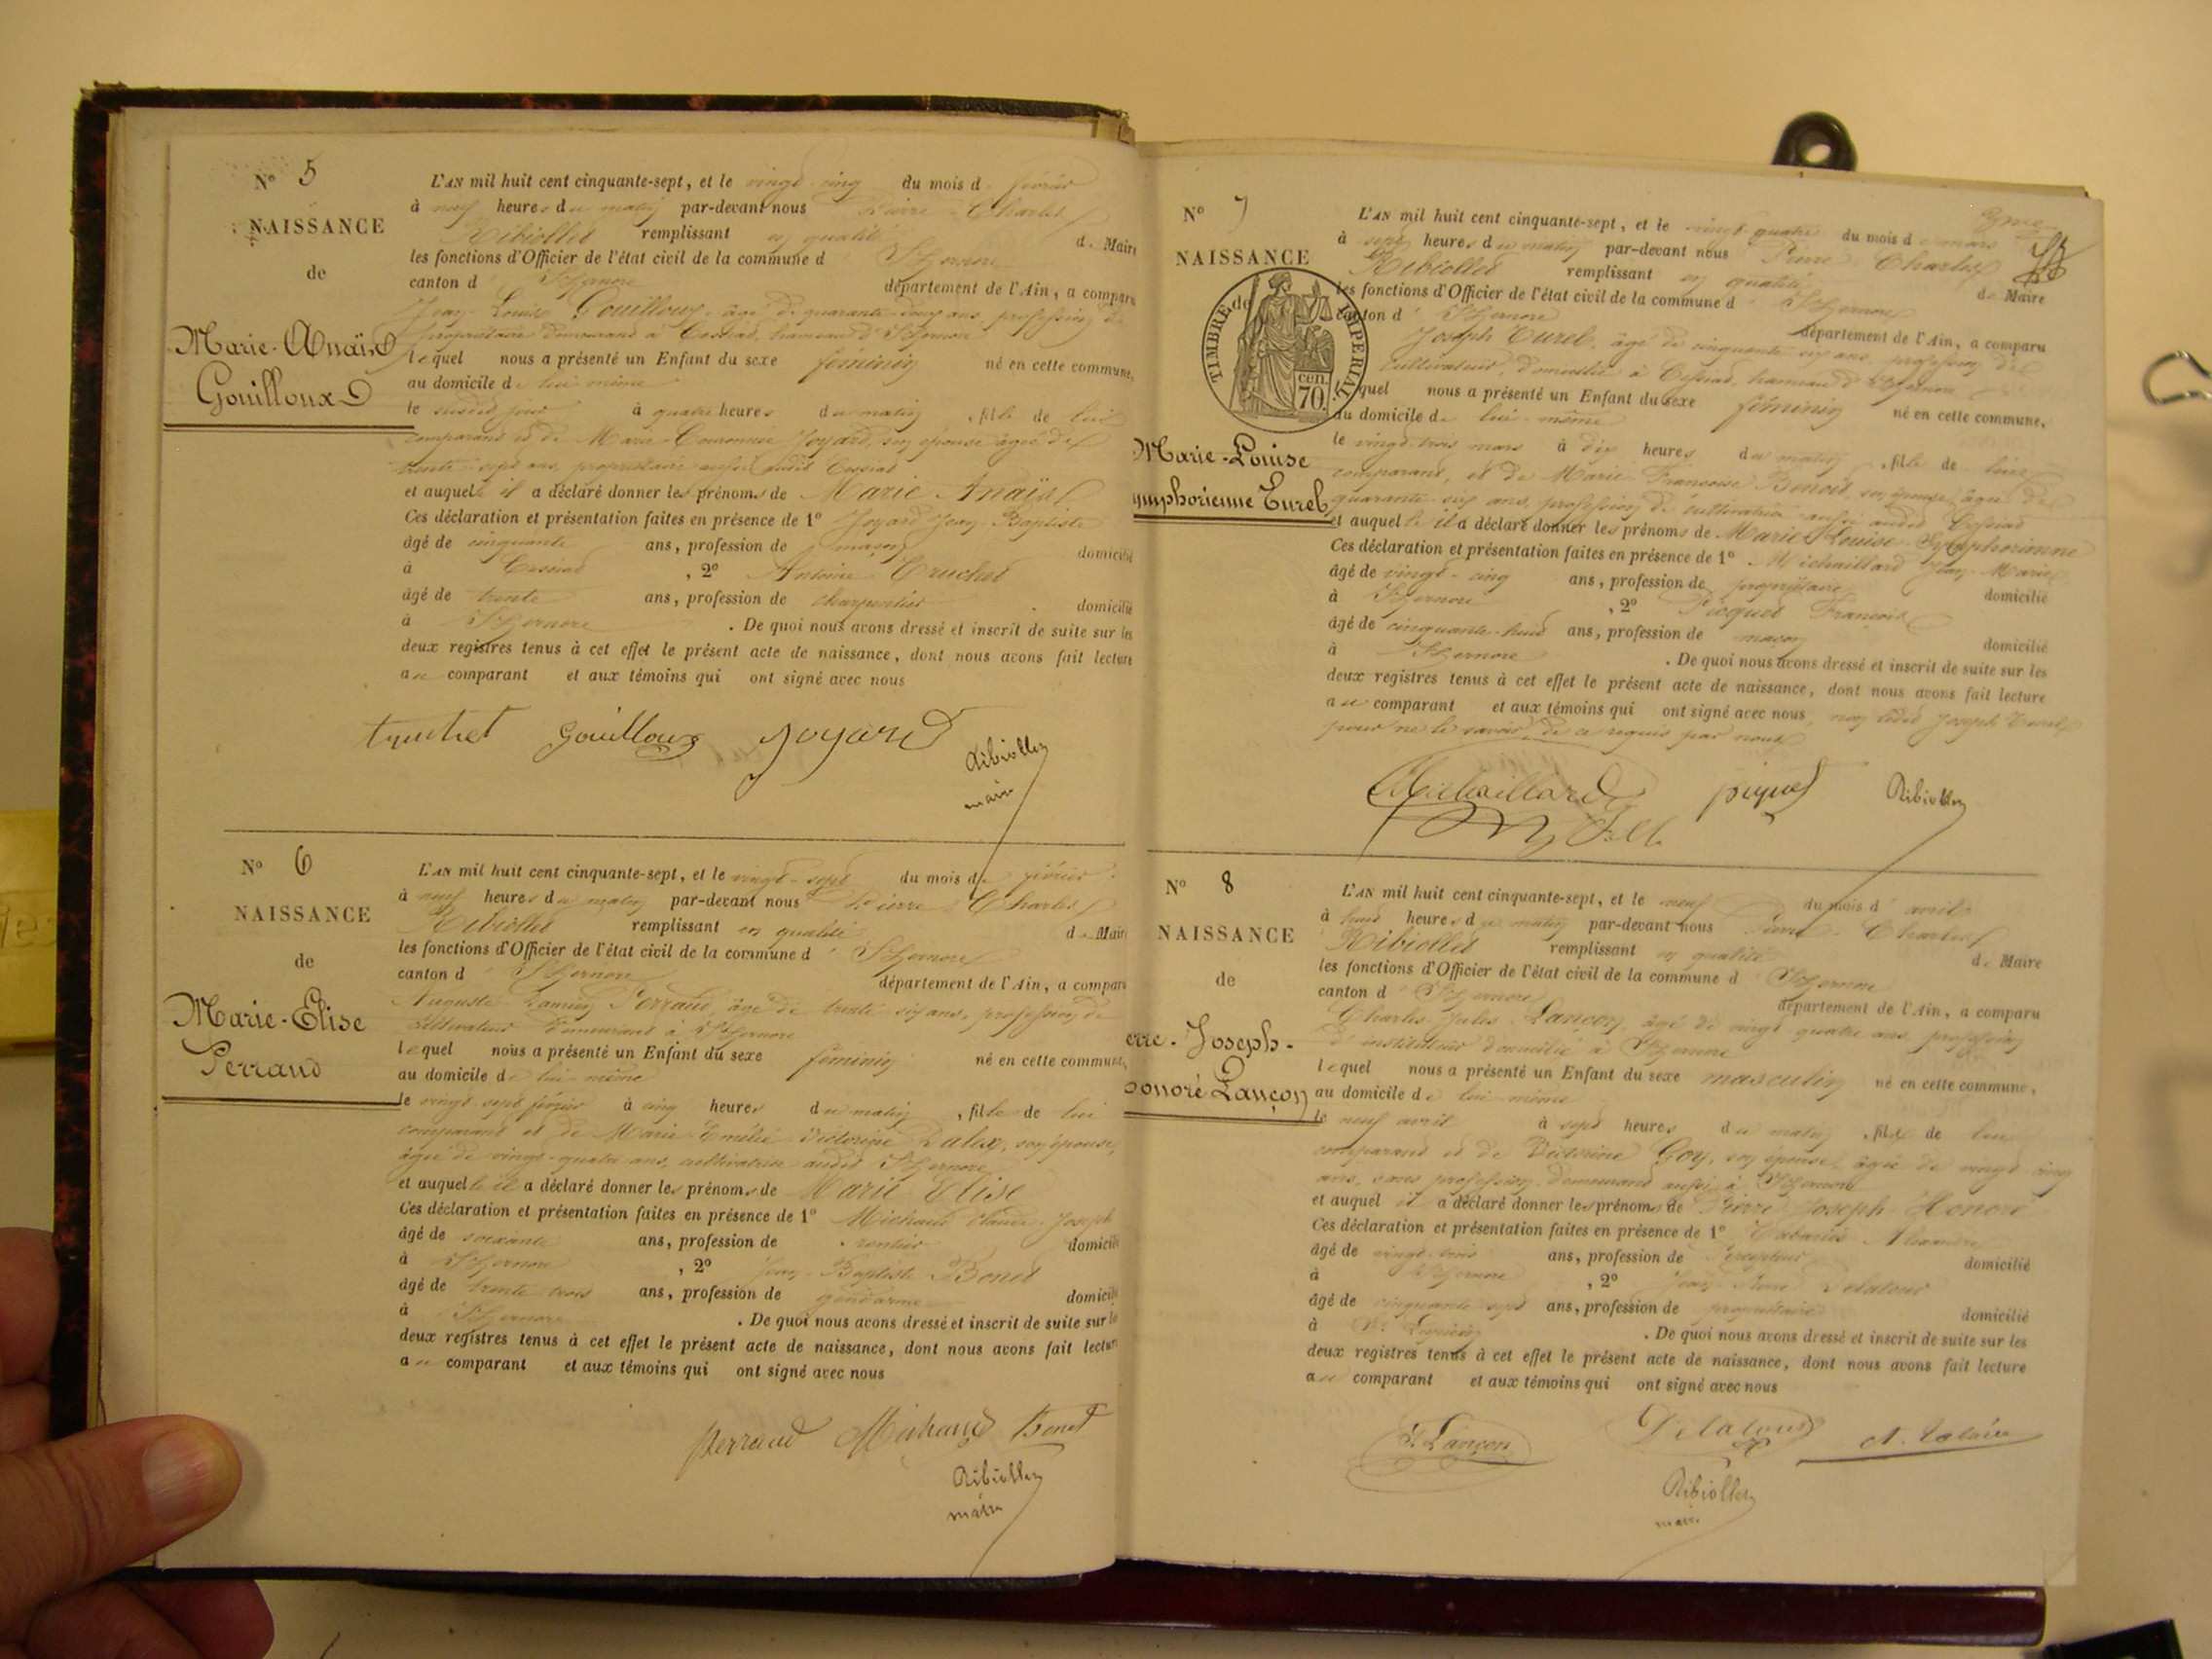 N° 5
NAISSANCE
de
Marie-Anaïs
Gouilloux
L'AN mil huit cent cinquante-sept, et le vingt-cinq du mois de février
à neuf heures du matin par-devant nous Pierre Charles
Ribiollet remplissant en qualité de Maire
les fonctions d'Officier de l'état civil de la commune d'Izernore
canton d'Izernore département de l'Ain, a comparu
Jean Louis Gouilloux, âgé de quarante-deux ans, profession de
propriétaire demeurant à Cessiat, hameau d'Izernore
lequel nous a présenté un Enfant du sexe féminin né en cette commune,
au domicile de lui même
le susdit jour à quatre heures du matin, fille de lui
comparant et de Marie Joyard, son épouse âgée de
trente-sept ans, propriétaire audit Cessiat
et auquelle il a déclaré donner les prénoms de Marie Anaïs
Ces déclaration et présentation faites en présence de 1° Joyard Jean Baptiste
âgé de cinquante ans, profession de maçon domicilié
à Cessiat, 2° Antoine Truchet
âgé de trente ans, profession de charpentier domicilié
à Izernore. De quoi nous avons dressé et inscrit de suite sur les
deux registres tenus à cet effet le présent acte de naissance, dont nous avons fait lecture
au comparant et aux témoins qui ont signé avec nous
truchet Gouilloux Joyard
Ribiollet
maire
N° 6
NAISSANCE
de
Marie-Elise
Perraud
L'AN mil huit cent cinquante-sept, et le vingt-sept du mois de février
à neuf heures du matin par-devant nous Pierre Charles
Ribiollet remplissant en qualité de Maire
les fonctions d'Officier de l'état civil de la commune d'Izernore
canton d'Izernore département de l'Ain, a comparu
Auguste Perraud, âgé de trente-six ans, profession de
cultivateur demeurant à Izernore
lequel nous a présenté un Enfant du sexe féminin né en cette commune,
au domicile de lui même
le vingt sept février à cinq heures du matin, fille de lui
comparant et de Marie Emélie Victorine Dalex, son épouse,
âgée de vingt-quatre ans, cultivatrice audit Izernore
et auquelle il a déclaré donner les prénoms de Marie Elise
Ces déclaration et présentation faites en présence de 1° Michaud Claude Joseph
âgé de soixante ans, profession de rentier domicilié
à Izernore, 2° Jean-Baptiste Bonet
âgé de trente trois ans, profession de gendarme domicilié
à Izernore. De quoi nous avons dressé et inscrit de suite sur les
deux registres tenus à cet effet le présent acte de naissance, dont nous avons fait lecture
au comparant et aux témoins qui ont signé avec nous
perraud Michaud Bonet
Ribiollet
maire
N° 7
NAISSANCE
de
TIMBRE IMPERIAL
70 cen.
Marie-Louise
ymphorienne Turel
L'AN mil huit cent cinquante-sept, et le vingt-quatre du mois de mars
à sept heures du matin par-devant nous Pierre Charles
Ribiollet remplissant en qualité de Maire
les fonctions d'Officier de l'état civil de la commune d'Izernore
canton d'Izernore département de l'Ain, a comparu
Joseph Turel, âgé de cinquante-six ans, profession de
cultivateur, domicilié à Cessiat, hameau d'Izernore
lequel nous a présenté un Enfant du sexe féminin né en cette commune,
au domicile de lui-même
le vingt-trois mars à dix heures du matin, fille de lui
comparant, et de Marie Françoise Benoit son épouse, âgée de
quarante-six ans, profession de cultivatrice aussi audit Cessiat
et auquelle il a déclaré donner les prénoms de Marie Louise Symphorienne
Ces déclaration et présentation faites en présence de 1° Michaillard Jean-Marie
âgé de vingt-cinq ans, profession de propriétaire domicilié
à Izernore, 2° Picquet François
âgé de cinquante-huit ans, profession de maçon domicilié
à Izernore. De quoi nous avons dressé et inscrit de suite sur les
deux registres tenus à cet effet le présent acte de naissance, dont nous avons fait lecture
au comparant et aux témoins qui ont signé avec nous, non ledit Joseph Turel
pour ne le savoir, de ce requis par nous
Michaillard piquet Ribiollet
N° 8
NAISSANCE
de
erre-Joseph-
onoré Lançon
L'AN mil huit cent cinquante-sept, et le neuf du mois d'avril
à huit heures du matin par-devant nous Pierre Charles
Ribiollet remplissant en qualité de Maire
les fonctions d'Officier de l'état civil de la commune d'Izernore
canton d'Izernore département de l'Ain, a comparu
Charles Jules Lançon, âgé de vingt quatre ans, profession
d'instituteur domicilié à Izernore
lequel nous a présenté un Enfant du sexe masculin né en cette commune,
au domicile de lui même
le neuf avril à sept heures du matin, fils de lui
comparant et de Victorine Goy, son épouse, âgée de vingt-cinq
ans, sans profession, demeurant aussi à Izernore
et auquel il a déclaré donner les prénoms de Pierre Joseph Honoré
Ces déclaration et présentation faites en présence de 1° Alexandre
âgé de vingt-trois ans, profession de percepteur domicilié
à Izernore, 2° Jean Delatour
âgé de cinquante-sept ans, profession de propriétaire domicilié
à. De quoi nous avons dressé et inscrit de suite sur les
deux registres tenus à cet effet le présent acte de naissance, dont nous avons fait lecture
au comparant et aux témoins qui ont signé avec nous
J. Lançon Delatour
Ribiollet
maire